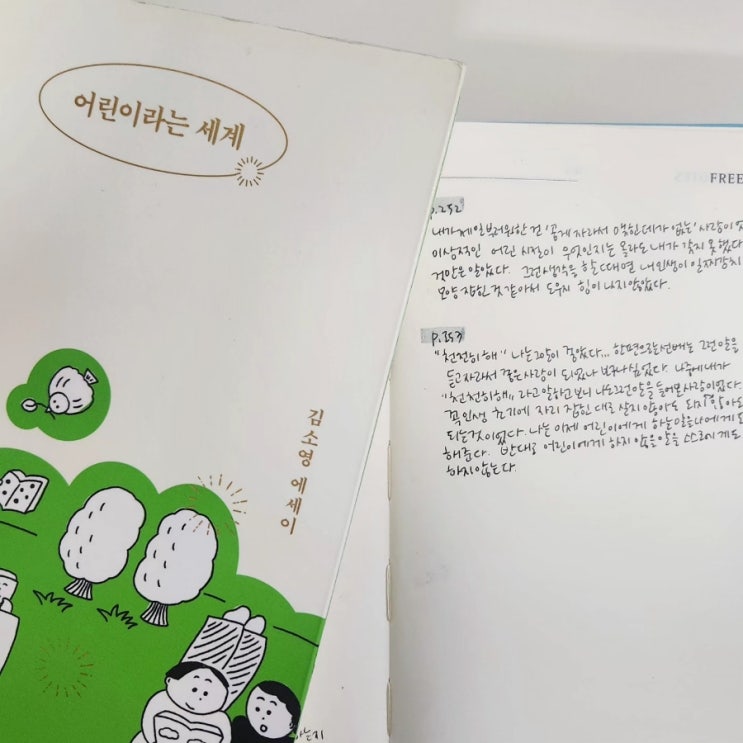 어린이라는 세계
김소영 에세이
FREE
p.252
내가 제일 부러워한 건 '곱게 자라서 맺힌 데가 없는' 사람이었
이상적인 어린 시절이 무엇인지는 몰라도 내가 갖지 못했다
것만은 알았다. 그런 생각을 할 때면 내 인생이 일찌감치
모양 잡힌 것 같아서 도무지 힘이 나지 않았다.
p.253
"천천히 해" 나는 그 말이 좋았다... 한편으로는 선배는 그런 말을
듣고 자라서 좋은 사람이 되었나 보구나 싶었다. 나중에 내가
"천천히 해" 라고 말하고 보니 나도 그런 말을 들어본 사람이었다.
꼭 인생 초기에 자리 잡힌 대로 살지 않아도 되지 않아도
되는 것이었다. 나는 이제 어린이에게 하는 말을 나에게도
해준다. 반대로 어린이에게 하지 않을 말을 스스로에게도
하지 않는다.